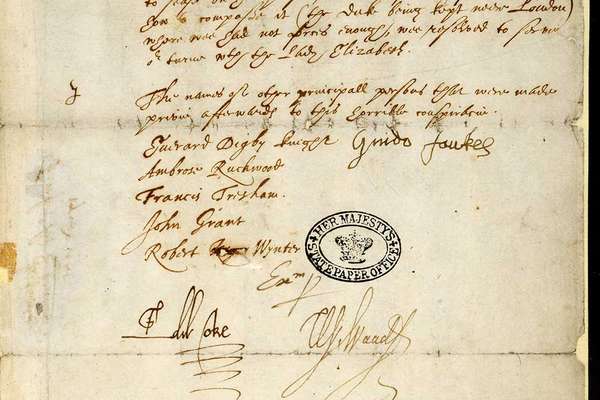 to
how to compose it (the Duke being kept neer London)
where we had not forces enough, we resolved to serve
or turne wth the Lady Elizabeth.
The names of other principall persons that were made
privie afterwards to this horrible conspiracie.
Everard Digby knight Guido faukes
Ambrose Ruckwood
Francis Tresham.
John Grant
Robert Wynter
HER MAJESTYS STATE PAPER OFFICE
Edw Coke
W Waad